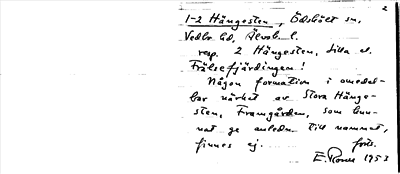 2
1-2 Hängesten, Ödskölt sn,
Vedbo hd, Älvsb. l.
resp. 2 Hängesten, Lilla el.
Frälsefjärdingen!
Någon formation i omedel-
bar närhet av Stora Hänge-
sten, Framgården, som kun-
nat ge anledn. till namnet,
finnes ej. forts.
E. 1953